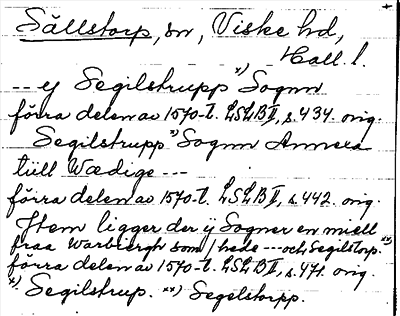 Sällstorp, sn, Viske hd,
Hall. l.
-- ij Segilstrupp x) Sognn
förra delen av 1570-t. LSLB I, s. 434. orig.
Segilstrupp x) Sognn Annexa
tiill Wædige ---
förra delen av 1570-t. LSLB I, s. 442. orig.
Item ligger der ij Sogner en miell
fraa Warbiergh som / hede --- och Segilstorp. xx)
förra delen av 1570-t. LSLB I, s. 471. orig.
x) Segilstrup. xx) Segelstorpp.